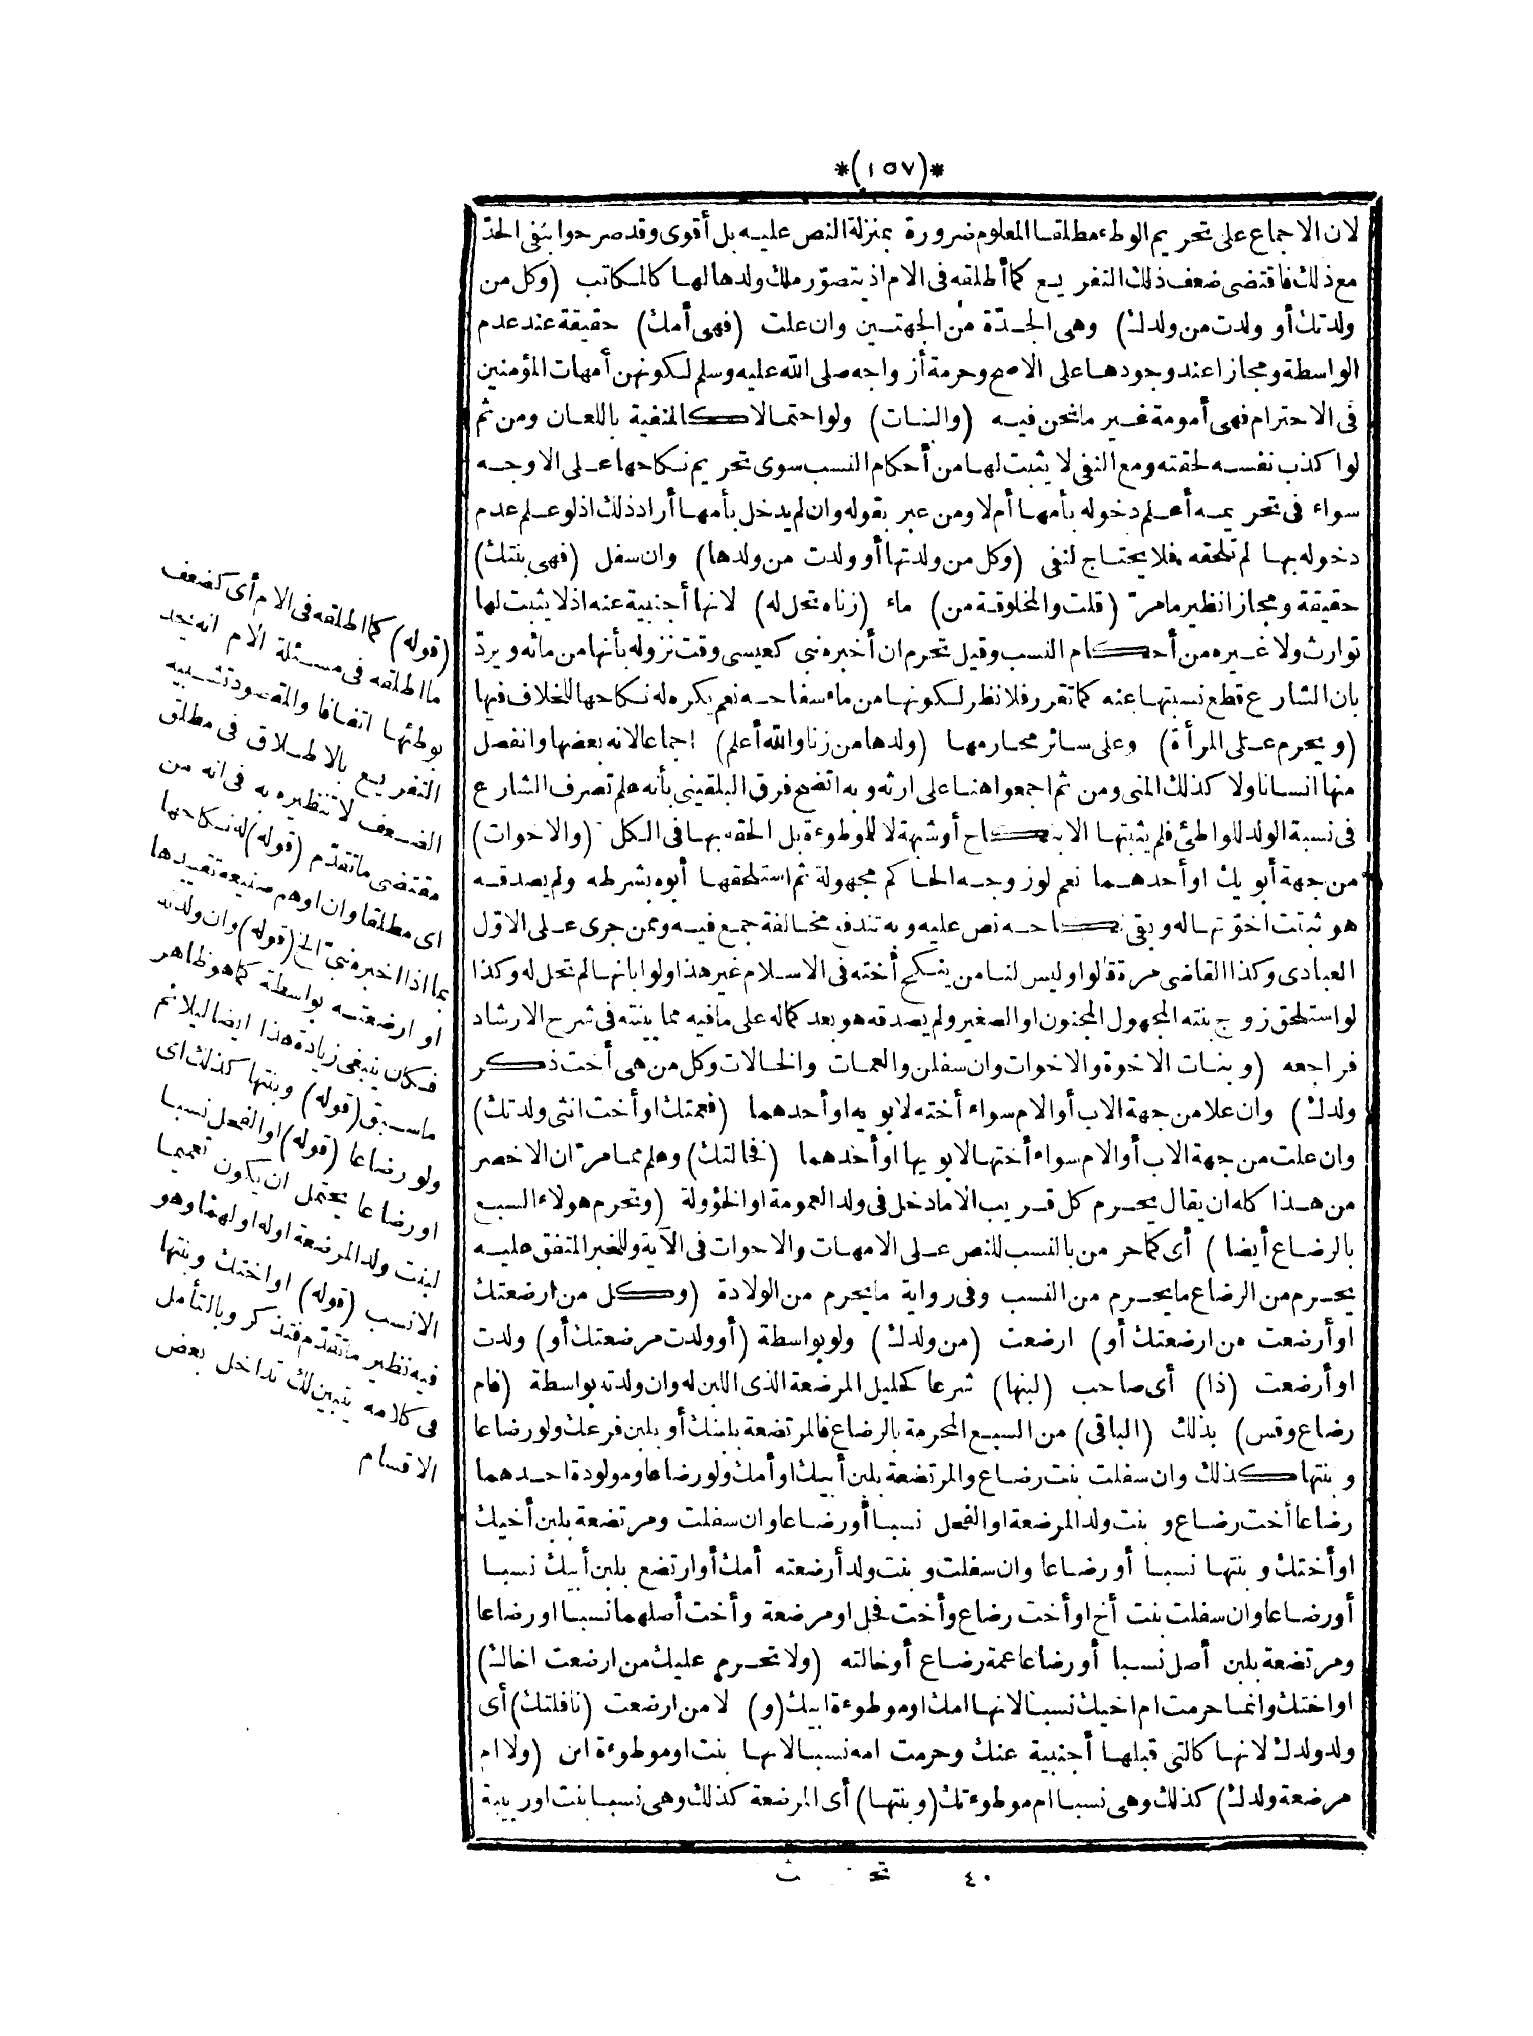 *(١٥٧)*
لان الاجماع على تحريم الوطء مطلقا المعلوم ضرورة بمنزلة النص عليه بل أقوى وقد صرحوا بنفى الحدّ
مع ذلك فاقتضى ضعف ذلك التفريع كما أطلقه فى الام اذ يتصوّر ملك ولدها لها كالمكاتب (وكل من
ولدتك أو ولدت من ولدك) وهى الجدّة من الجهتين وان علت (فهى أمك) حقيقة عند عدم
الواسطة ومجازا عند وجودها على الاصح وحرمة أزواجه صلى الله عليه وسلم لكونهن أمهات المؤمنين
فى الاحترام فهى أمومة غير ما نحن فيه (والبنات) ولو احتمالا كالمنفية باللعان ومن ثم
لو اكذب نفسه لحقته ومع النفى لا يثبت لها من أحكام النسب سوى تحريم نكاحها على الاوجه
سواء فى تحريمه أعلم دخوله بأمها أم لا ومن عبر بقوله وان لم يدخل بأمها أراد ذلك اذ لو علم عدم
دخوله بها لم تلحقه فلا يحتاج لنفى (وكل من ولدتها أو ولدت من ولدها) وان سفل (فهى بنتك)
حقيقة ومجازا نظير ما مرّ (قلت والمخلوقة من) ماء (زناه تحل له) لانها أجنبية عنه اذ لا يثبت لها
توارث ولا غيره من أحكام النسب وقيل تحرم ان أخبره نبى كعيسى وقت نزوله بأنها من مائه ويردّ
بان الشارع قطع نسبتها عنه كما تقرر فلا نظر لكونها من ماء سفاحه نعم يكره له نكاحها للخلاف فيها
(ويحرم على المرأة) وعلى سائر محارمها (ولدها من زنا والله أعلم) اجماعا لانه بعضها وانفصل
منها انسانا ولا كذلك المنى ومن ثم اجمعوا هنا على ارثه وبه اتضح فرق البلقينى بأنه علم تصرف الشارع
فى نسبة الولد للواطئ فلم يثبتها الا بنكاح أو شبهة لا للموطوءة بل الحقه بها فى الكل (والاخوات)
من جهة أبويك او أحدهما نعم لو زوجه الحاكم مجهولة ثم استلحقها أبوه بشرطه ولم يصدقه
هو ثبتت اخوّتها له وبقى نكاحه نص عليه وبه تندفع مخالفة جمع فيه وممن جرى على الاوّل
العبادى وكذا القاضى مرة قالوا وليس لنا من ينكح أخته فى الاسلام غير هذا ولو ابانها لم تحل له وكذا
لو استلحق زوج بنته المجهول المجنون او الصغير ولم يصدقه هو بعد كماله على ما فيه مما بينته فى شرح الارشاد
فراجعه (وبنات الاخوة والاخوات وان سفلن والعمات والخالات وكل من هى أخت ذكر
ولدك) وان علا من جهة الاب أو الام سواء أخته لابويه او أحدهما (فعمتك او أخت انثى ولدتك)
وان علت من جهة الاب أو الام سواء أختها لابويها او أحدهما (فخالتك) وعلم مما مرّ ان الاخصر
من هذا كله ان يقال يحرم كل قريب الا ما دخل فى ولد العمومة او الخؤولة (وتحرم هولاء السبع
بالرضاع أيضا) أى كما حرمن بالنسب للنص على الامهات والاخوات فى الآية وللخبر المتفق عليه
يحرم من الرضاع ما يحرم من النسب وفى رواية ما يحرم من الولادة (وكل من ارضعتك
او أرضعت من ارضعتك أو) ارضعت (من ولدك) ولو بواسطة (أو ولدت مرضعتك أو) ولدت
او أرضعت (ذا) أى صاحب (لبنها) شرعا كحليل المرضعة الذى اللبن له وان ولدته بواسطة (فام
رضاع وقس) بذلك (الباقى) من السبع المحرمة بالرضاع فالمرتضعة بلبنك أو بلبن فرعك ولو رضاعا
وبنتها كذلك وان سفلت بنت رضاع والمرتضعة بلبن أبيك او أمك ولو رضاعا ومولودة احدهما
رضاعا أخت رضاع وبنت ولد المرضعة او الفحل نسبا أو رضاعا وان سفلت ومرتضعة بلبن أخيك
او أختك وبنتها نسبا أو رضاعا وان سفلت وبنت ولد أرضعته أمك أو ارتضع بلبن أبيك نسبا
أو رضاعا وان سفلت بنت أخ او أخت رضاع وأخت فحل او مرضعة وأخت أصلهما نسبا او رضاعا
ومرتضعة بلبن أصل نسبا أو رضاعا عمة رضاع أو خالته (ولا تحرم عليك من ارضعت اخاك)
او اختك وانما حرمت ام اخيك نسبا لانها امك او موطوءة ابيك (و) لا من ارضعت (نافلتك) أى
ولد ولدك لانها كالتى قبلها أجنبية عنك وحرمت امه نسبا لانها بنت او موطوءة ابن (ولا ام
مرضعة ولدك) كذلك وهى نسبا ام موطوءتك (وبنتها) أى المرضعة كذلك وهى نسبا بنت او ربيبة
٤٠ تح ث
(قوله) كما اطلقه فى الام أى كضعف
ما اطلقه فى مسئلة الام انه يحد
بوطئها اتفاقا والمقصود تشبيه
التفريع بالاطلاق فى مطلق
الضعف لا تنظيره به فى انه من
مقتضى ما تقدّم (قوله) له نكاحها
اى مطلقا وان اوهم صنيعه تقييدها
بما اذا اخبره نبىّ الخ (قوله) وان ولدته
او ارضعته بواسطة كما هو ظاهر
فكان ينبغى زيادة هذا ايضا ليلائم
ما سبق (قوله) وبنتها كذلك اى
ولو رضاعا (قوله) او الفحل نسبا
او رضاعا يحتمل ان يكون تعميما
لبنت ولد المرضعة اوله او لهما وهو
الانسب (قوله) او اختك وبنتها
فيه نظير ما تقدّم فتذكر وبالتأمل
فى كلامه يتبين لك تداخل بعض
الاقسام